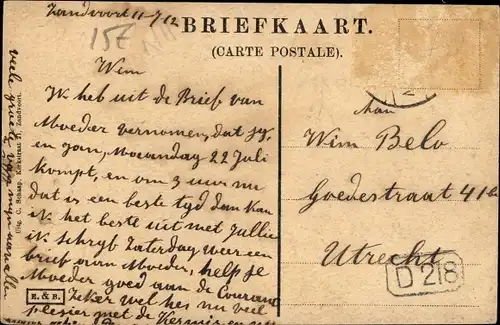 Zandvoort 11-7/12
15E
BRIEFKAART.
(CARTE POSTALE).
Wim
Ik heb uit de Brief van
Moeder vernomen, dat jy
en Jan, Moaandag 22 Juli
kompt, en om 3 uur nu
dat is een beste tyd dan kan
ik het beste uit met Jullie
ik schryf Zaterdag weer een
brief aan Moeder, help je
Moeder goed aan de Courant
Zeker wel hes nu veel
plesier met de Kermis en
veele groete van myn
Uitg. C. Schaap, Kerkstraat 21, Zandvoort.
E. & B.
Aan
Wim Belo
Goedestraat 41a
Utrecht
D 218